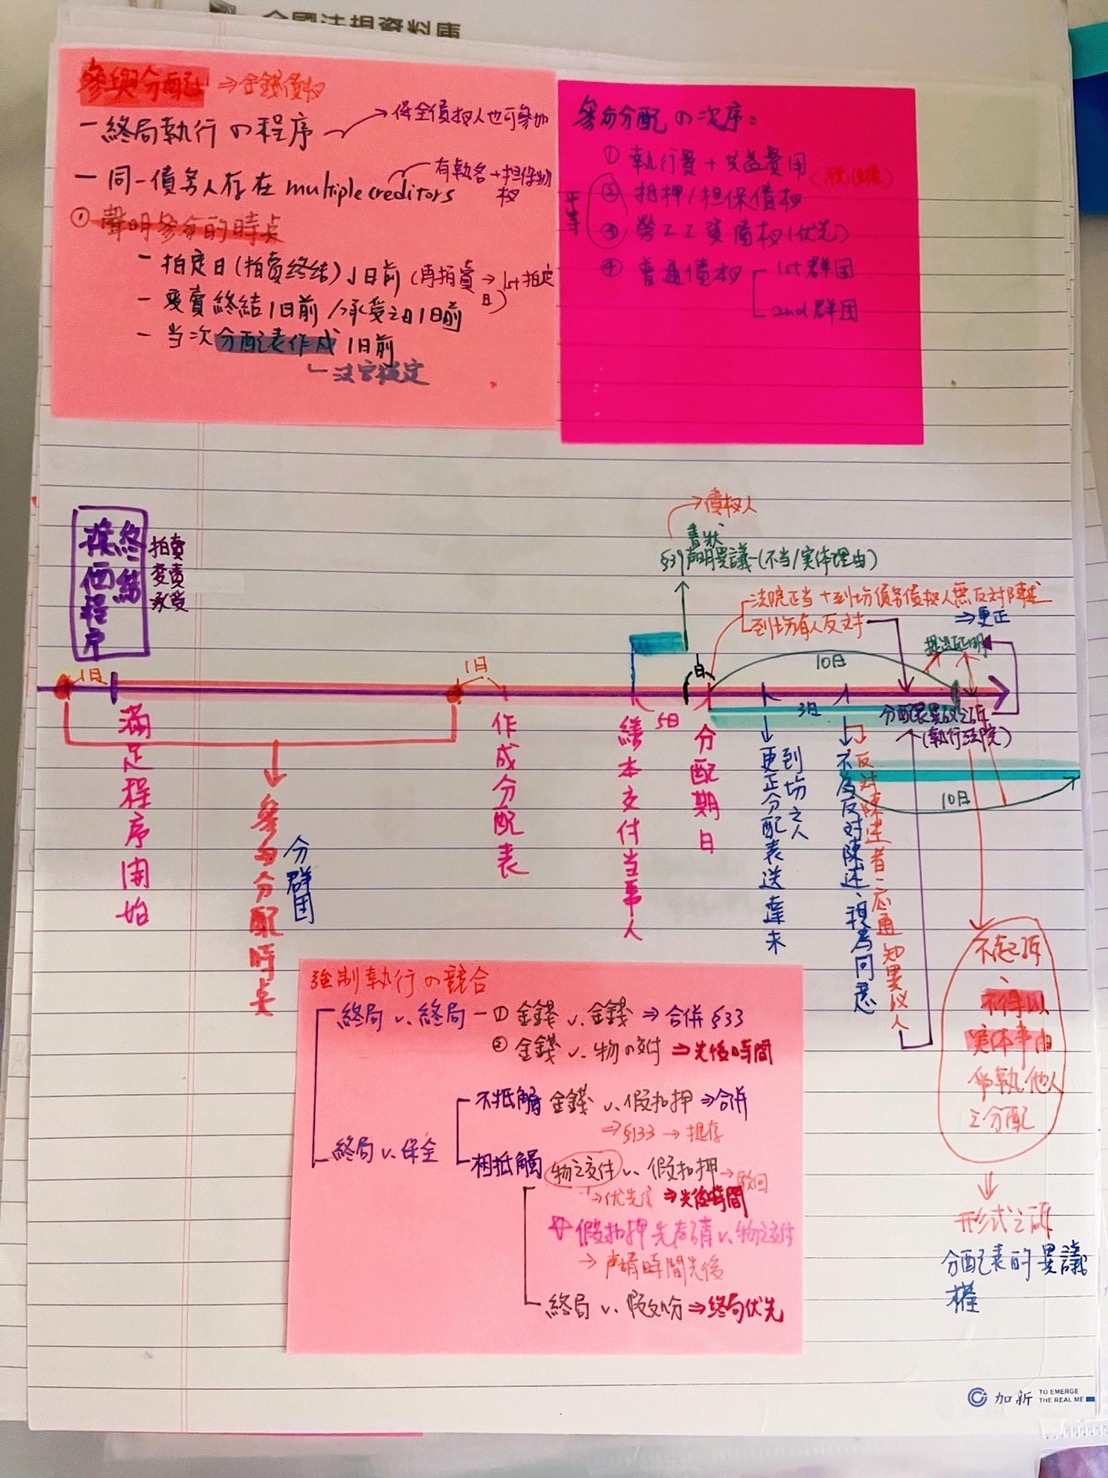 全國法規資料庫
參與分配 ⇒金錢債权
－終局執行の程序 →保全債权人也可參加
－同一債务人存在 multiple creditors →有執名+担保物权
① 聲明參与的時点
－拍定日(拍賣終結)1日前 (再拍賣→1st拍定日)
－变賣終結1日前/承受之日1日前
－当次分配表作成1日前
參与分配の次序：
① 執行費+共益費用
② 抵押/担保債权
③ 勞工工資債权(优先)
平等
④ 普通債权
1st群团
2nd群团
終結
換価程序
拍賣
変賣
承受
→債权人
書狀
§39声明異議-(不当/実体理由)
法院正当+到场債务債权人無反对陳述
⇒更正
到场有人反对
10日
1日
1日
5日
3日
滿足程序開始
作成分配表
繕本交付当事人
分配期日
到场之人
更正分配表送達未
不為反对陳述、視為同意
反对陳述者、应通知異议人
分配表異议之訴
(執行法院)
10日
參与分配時点
分群团
不起訴、
不得以
実体事由
爭執他人
之分配
形式之訴
分配表的異議
權
強制執行の競合
終局 v. 終局 － ① 金錢 v. 金錢 ⇒ 合併 §33
② 金錢 v. 物の交付 ⇒ 先後時間
終局 v. 保全
不抵觸 金錢 v. 假扣押 ⇒合併
⇒§133 → 提存
相抵觸 物之交付 v. 假扣押
⇒先後時間
假扣押先声請 v. 物之交付
→ 声請時間先後
終局 v. 假处份 ⇒終局优先
加新 TO EMERGE
THE REAL ME